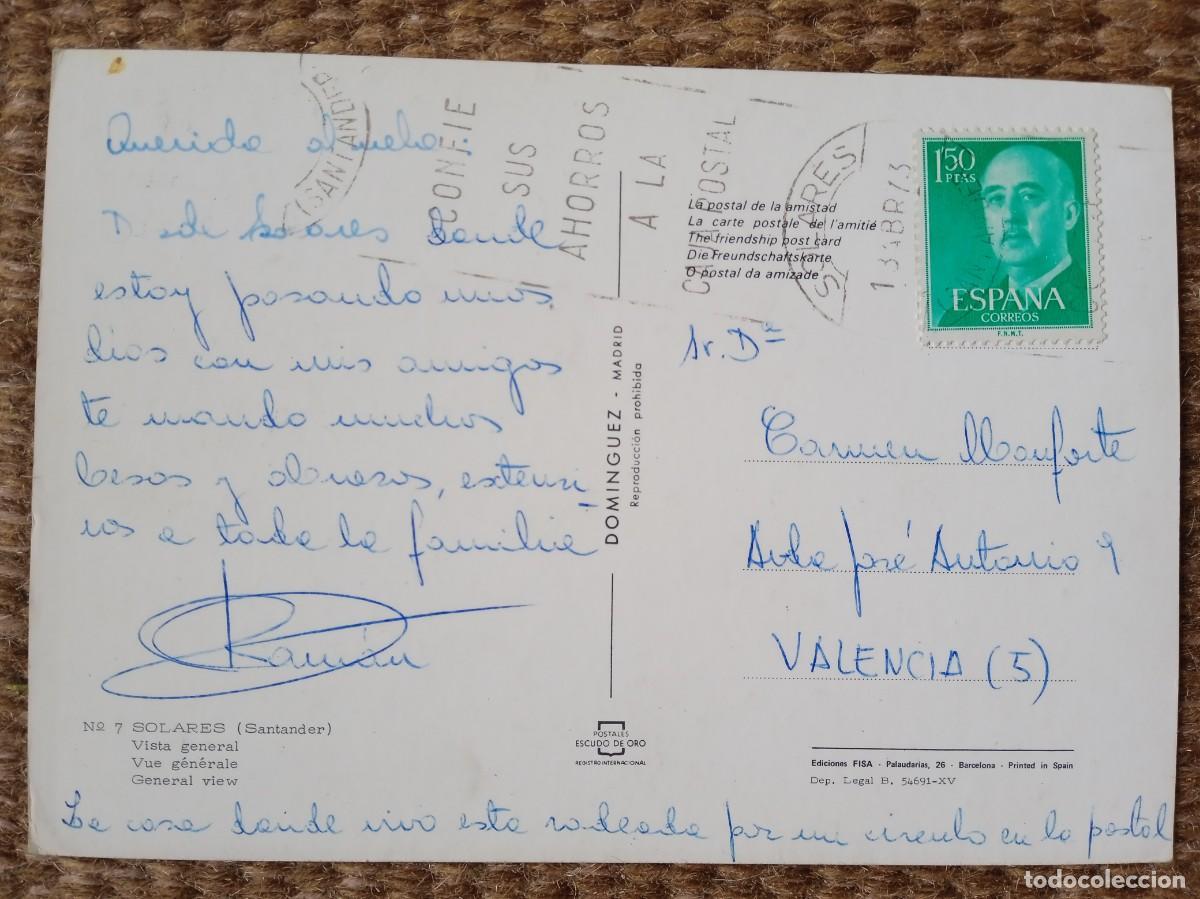 Querida abuela:
Desde Solares donde
estoy pasando unos
dias con mis amigos
te mando muchos
besos y abrazos, extensi-
vos a toda la familia
Ramón
Nº 7 SOLARES (Santander)
Vista general
Vue générale
General view
La casa donde vivo esta rodeada por un circulo en la postal
(SANTANDER)
CONFIE
SUS
AHORROS
A LA
CAJA POSTAL
SOLARES
ABR 73
DOMINGUEZ - MADRID
Reproducción prohibida
POSTALES
ESCUDO DE ORO
REGISTRO INTERNACIONAL
La postal de la amistad
La carte postale de l'amitié
The friendship post card
Die Freundschaftskarte
O postal da amizade
1'50
PTAS
ESPAÑA
CORREOS
F.N.M.T.
Sr. Dª
Carmen Monforte
Avda José Antonio 9
VALENCIA (5)
Ediciones FISA · Palaudarias, 26 · Barcelona · Printed in Spain
Dep. Legal B. 54691-XV
todocoleccion